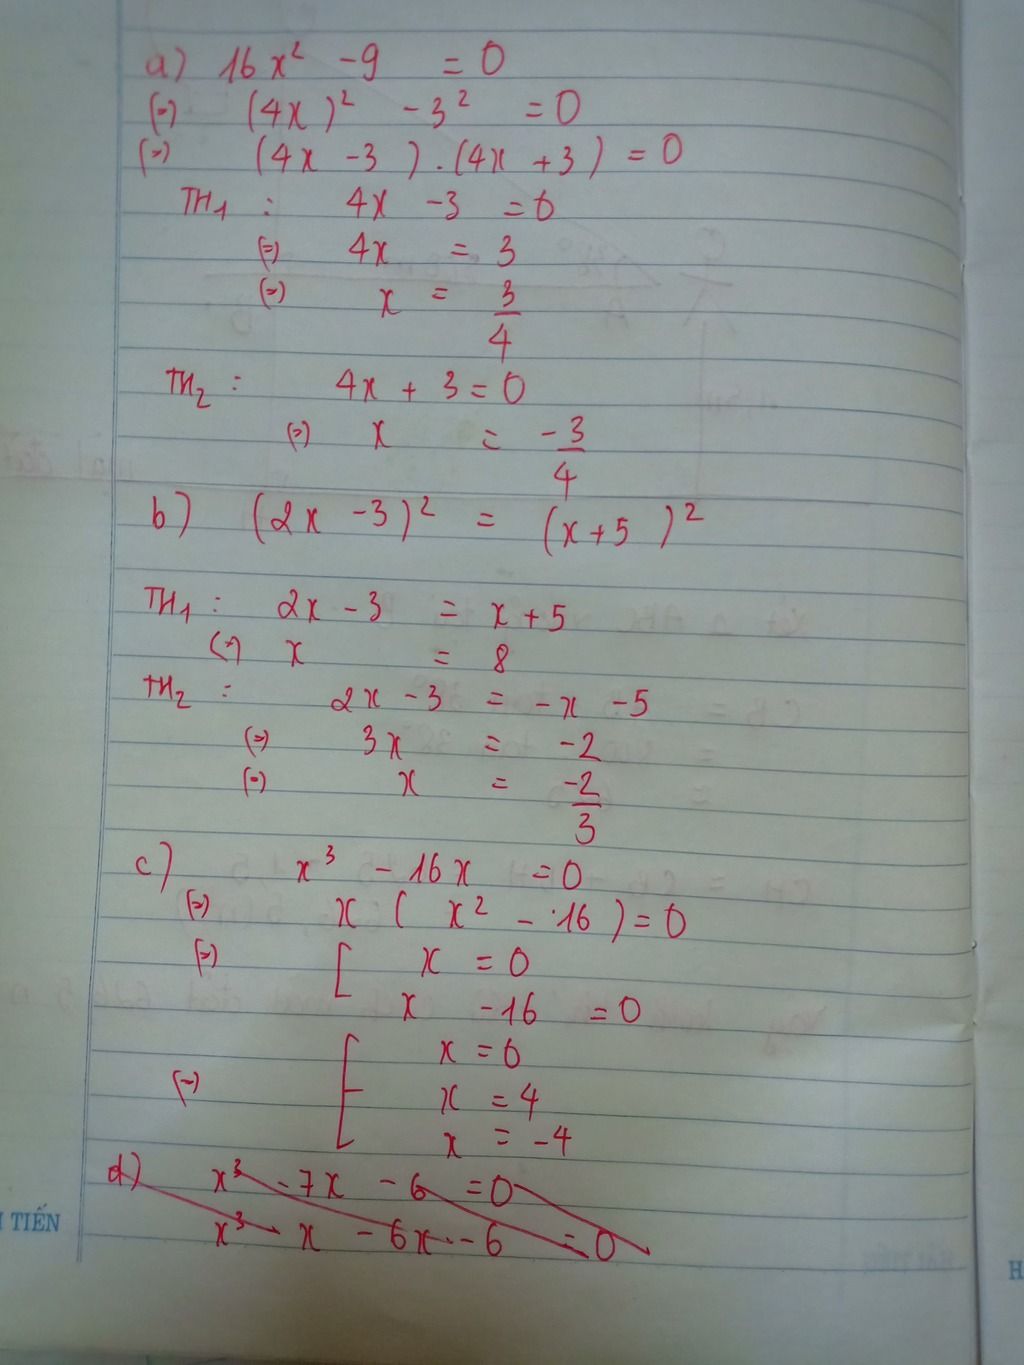 a) 16x² - 9 = 0
(=) (4x)² - 3² = 0
(=) (4x - 3) . (4x + 3) = 0
TH₁ : 4x - 3 = 0
(=) 4x = 3
(=) x = 3/4
TH₂ : 4x + 3 = 0
(=) x = -3/4
b) (2x - 3)² = (x + 5)²
TH₁ : 2x - 3 = x + 5
(=) x = 8
TH₂ : 2x - 3 = -x - 5
(=) 3x = -2
(=) x = -2/3
c) x³ - 16x = 0
(=) x ( x² - 16 ) = 0
(=) [ x = 0
x - 16 = 0
(=) [ x = 0
x = 4
x = -4
d) x³ - 7x - 6 = 0
x³ - x - 6x - 6 = 0
TIẾN
H